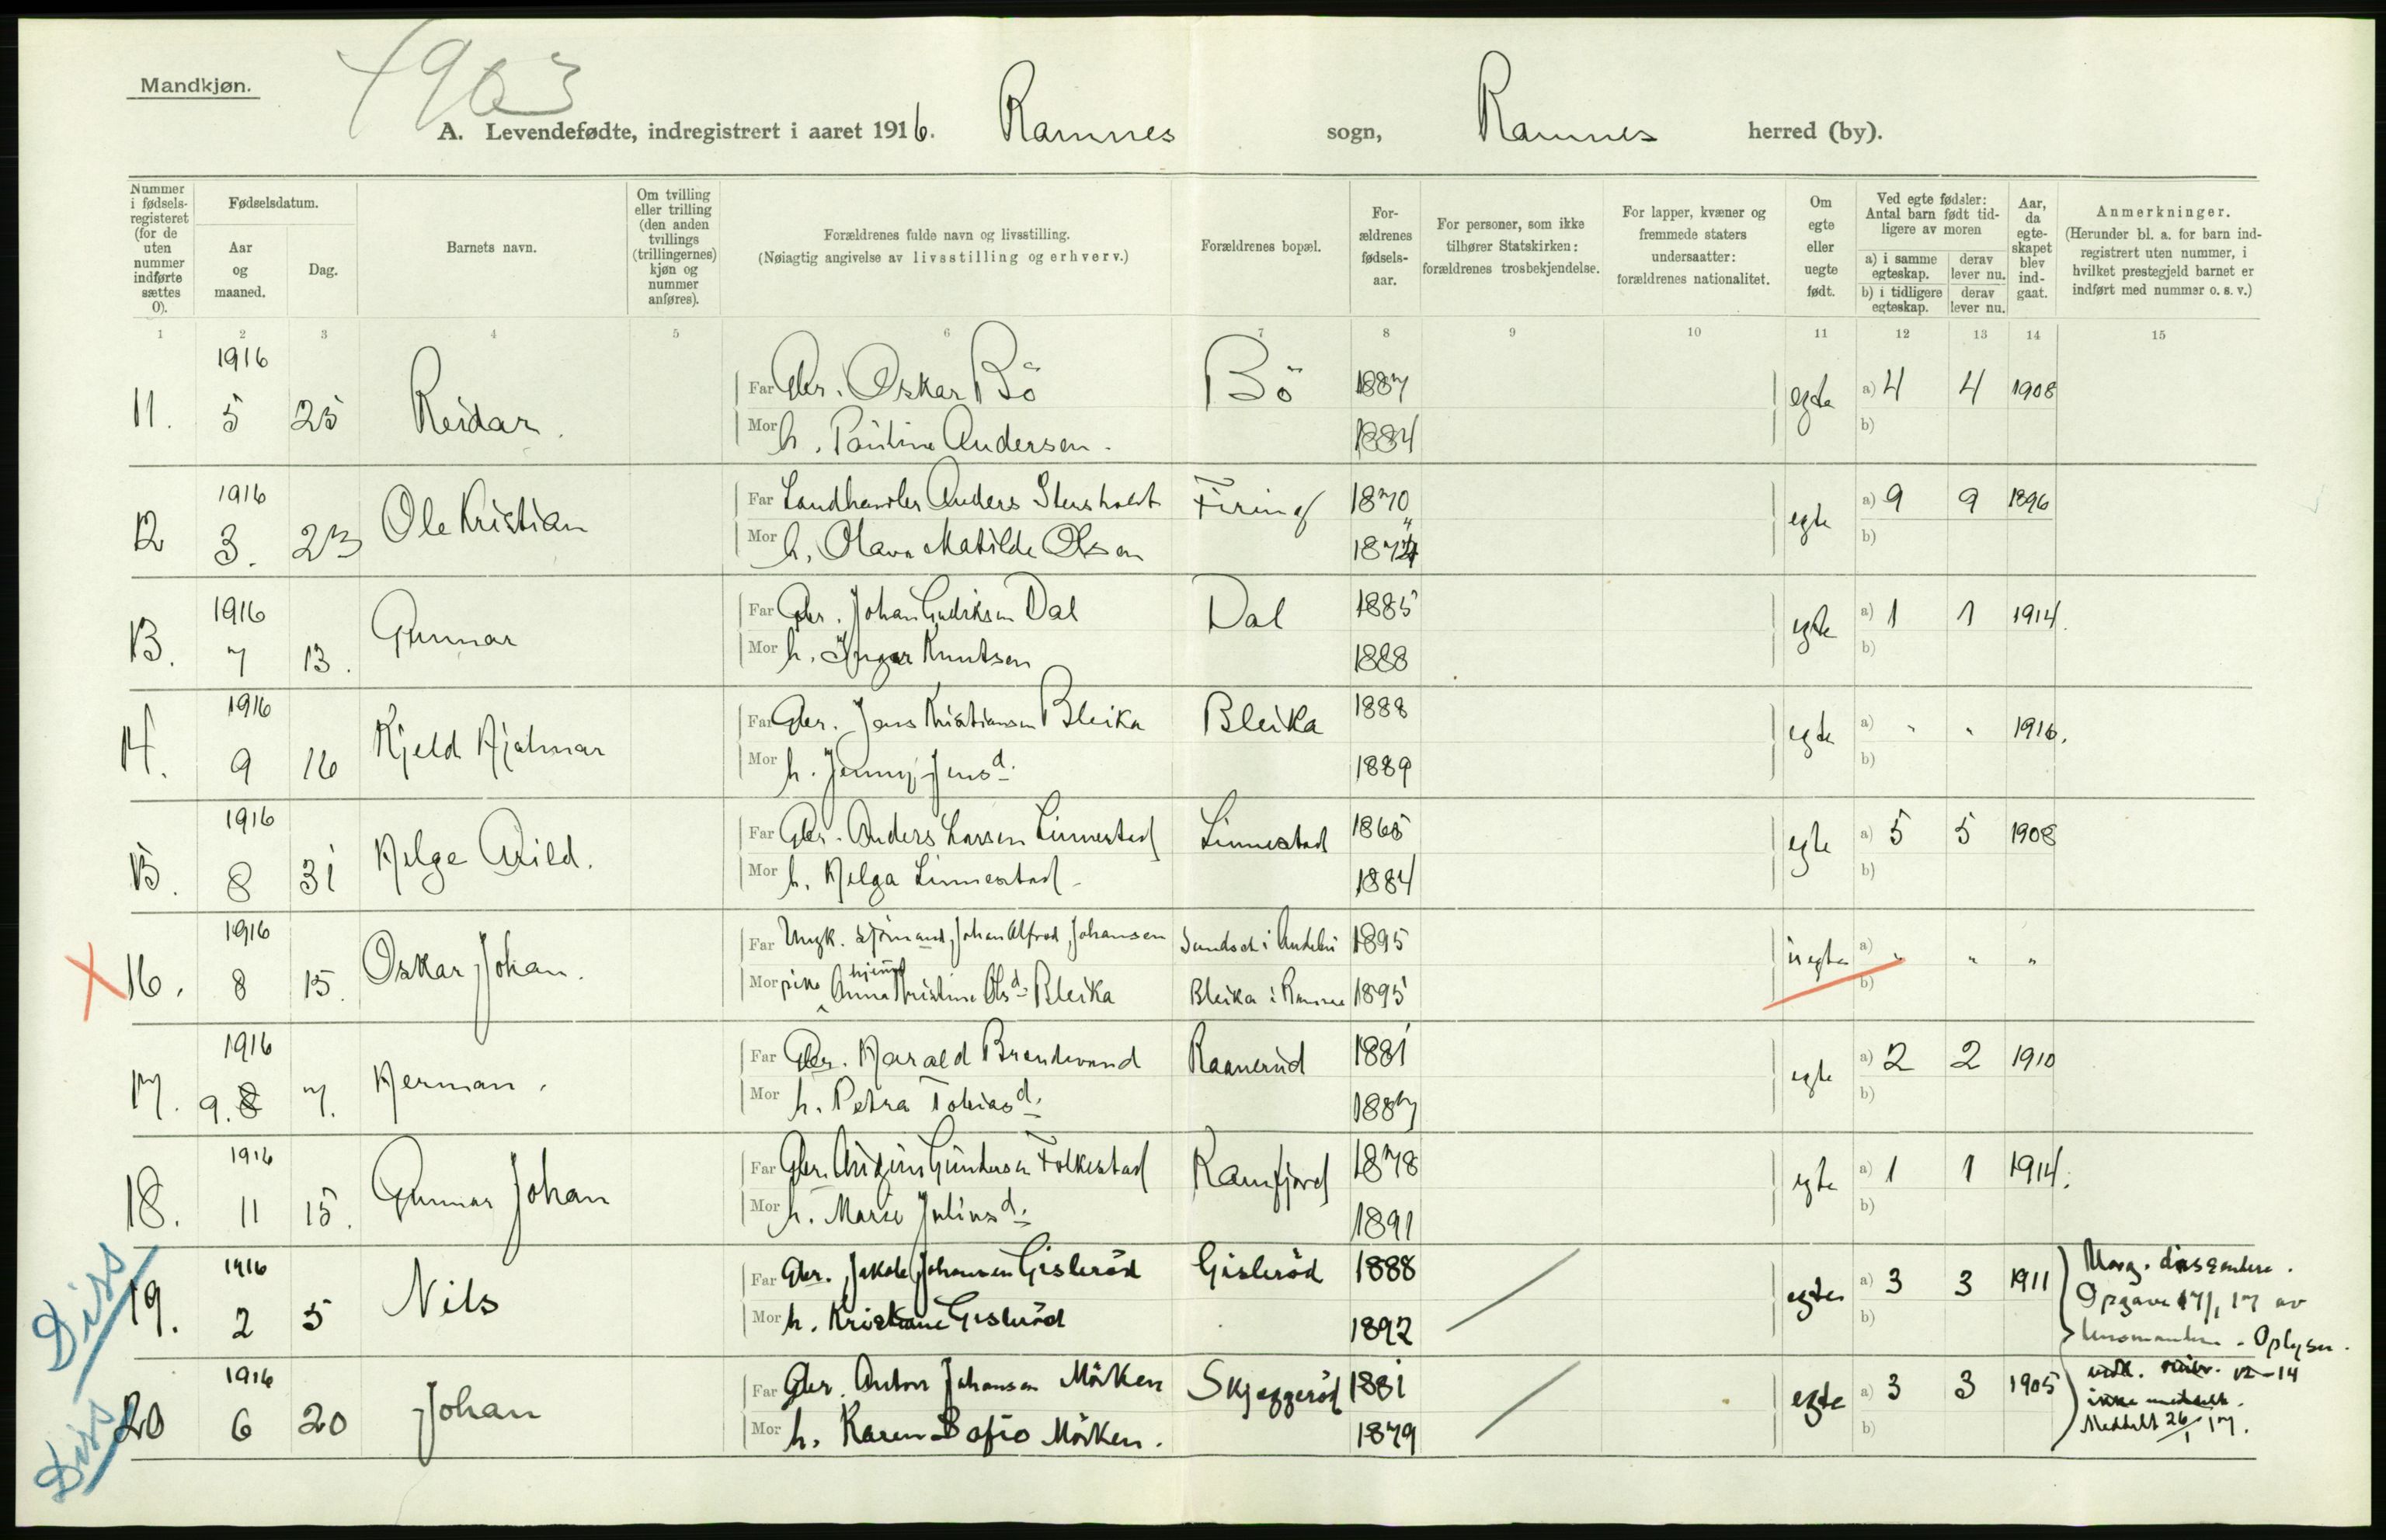 1903
Mandkjøn.
A. Levendefødte, indregistrert i aaret 1916. Ramnes sogn, Ramnes herred (by).
Nummer i fødsels-registeret (for de uten nummer indførte sættes 0).
Fødselsdatum.
Aar og maaned.
Dag.
Barnets navn.
Om tvilling eller trilling (den anden tvillings (trillingernes) kjøn og nummer anføres).
Forældrenes fulde navn og livsstilling.
(Nøiagtig angivelse av livsstilling og erhverv.)
Forældrenes bopæl.
For-ældrenes fødsels-aar.
For personer, som ikke tilhører Statskirken: forældrenes trosbekjendelse.
For lapper, kvæner og fremmede staters undersaatter: forældrenes nationalitet.
Om egte eller uegte født.
Ved egte fødsler: Antal barn født tid-ligere av moren
a) i samme egteskap. derav lever nu.
b) i tidligere egteskap. derav lever nu.
Aar, da egte-skapet blev ind-gaat.
Anmerkninger.
(Herunder bl. a. for barn ind-registrert uten nummer, i hvilket prestegjeld barnet er indført med nummer o. s. v.)
1 2 3 4 5 6 7 8 9 10 11 12 13 14 15
1916
11. 5 25 Reidar. Far Gbr. Oskar Bö Bö 1887 egte a) 4 4 1908
Mor h. Pauline Andersen. 1884 b)
1916
12 3. 23 Ole Kristian Far Landhandler Anders Firing 1870 egte a) 9 9 1896
Mor h. Olava Matilde Olsen b)
1916
13. 7 13. Gunnar Far Gbr. Johan Dal Dal 1885 egte a) 1 1 1914.
Mor h. Inger Knutsen 1888 b)
1916
14. 9 16 Kjeld Hjalmar Far Gbr. Jens Kristiansen Bleika Bleika 1888 egte a) " " 1916.
Mor h. Jenny Jensd. 1889 b)
1916
15. 8 31 Helge Arild. Far Gbr. Anders Larsen Linnestad Linnestad 1865 egte a) 5 5 1908
Mor h. Helga Linnestad 1884 b)
1916
16. 8 15. Oskar Johan. Far Ungk. sjömand Johan Alfred Johansen i Andebu 1895 uegte a) " " "
Mor pike hjem Anna Kristine Olsd. Bleika Bleika i Ramnes 1895 b)
1916
17. 9. 8 7. Herman. Far Gbr. Harald Brendevand Raanerud 1881 egte a) 2 2 1910
Mor h. Petra Tobiasd. 1887 b)
1916
18. 11 15. Gunnar Johan Far Gbr. Gundersen Folkestad Ramfjord 1878 egte a) 1 1 1914.
Mor h. Marie Juliusd. 1891 b)
Diss
1916
19. 2 5 Nils Far Gbr. Jakob Johansen Gisleröd Gisleröd 1888 egte a) 3 3 1911 dissentere.
Mor h. Kristiane Gisleröd 1892 b) Opgave 17/1 17 av
Oplysn.
Diss
1916
20 6 20 Johan Far Gbr. Anton Johansen Mörken Skjeggeröd 1881 egte a) 3 3 1905 12-14
ikke meddelt.
Mor h. Karen Sofie Mörken. 1879 b) Meddelt 26/1 17.